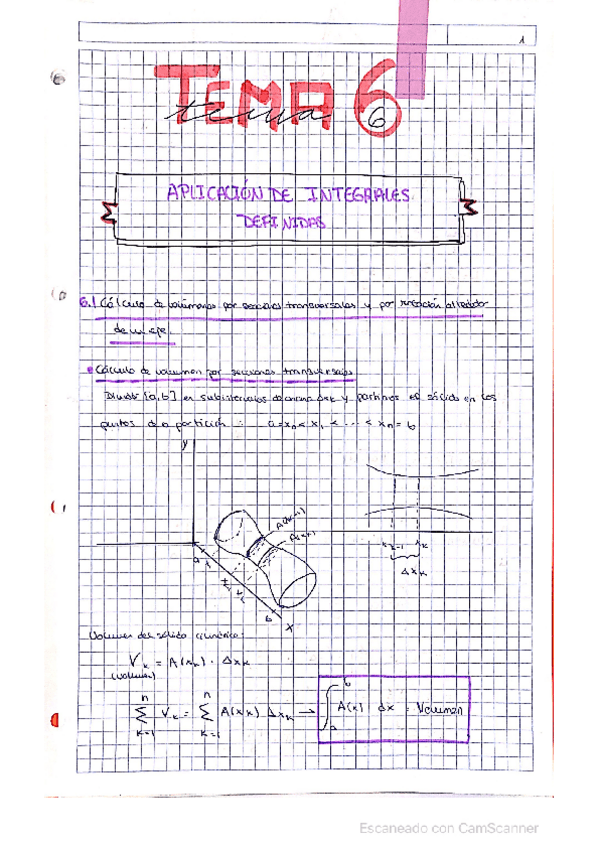 1
TEMA 6
tema 6
APLICACIÓN DE INTEGRALES
DEFINIDAS
6.1 Cálculo de volúmenes por secciones transversales y por rotación alrededor
de un eje.
Cálculo de volumen por secciones transversales
Dividir [a,b] en subintervalos de ancho Δxk y partimos el sólido en los
puntos de a partición : a=x₀< x₁ < ... < xn = b
y
A(xk-1)
A(xk)
a
b
x
xk-1 xk
Δxk
Volumen del sólido cilíndrico:
Vk = A(xk) · Δxk
(volumen)
n
∑ Vk = ∑ A(xk) Δxk → ∫ₐᵇ A(x) dx = Volumen
k=1 k=1
Escaneado con CamScanner